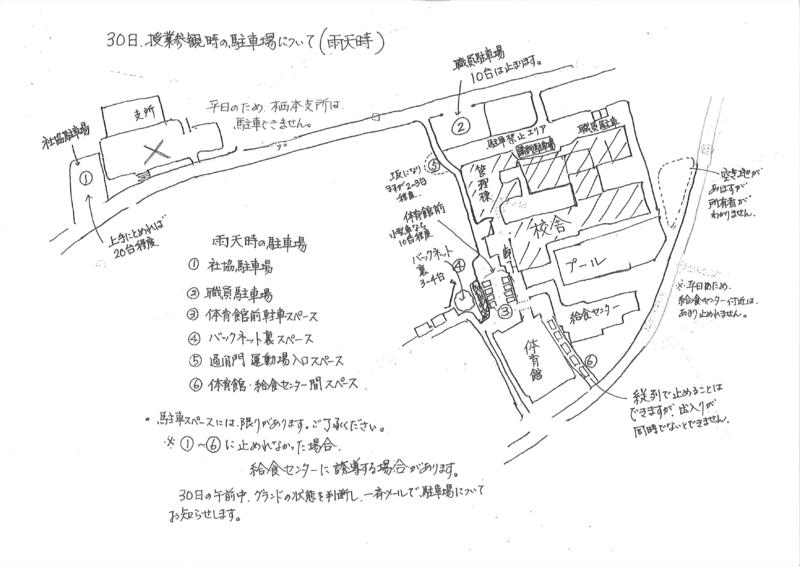 30日.授業参観時の駐車場について(雨天時)
職員駐車場
10台は止まります。
支所
平日のため、栖本支所は、
駐車できません。
社協駐車場
②
駐車禁止エリア
職員駐車
①
⑤
坂になり
ますが2~3台
程度。
管理棟
空き地が
ありますが
所有者が
わかりません。
上手にとめれば
20台程度
体育館前
小型車なら
10台程度
校舎
雨天時の駐車場
バックネット
裏
3~4台
④
プール
① 社協駐車場
② 職員駐車場
③ 体育館前駐車スペース
④ バックネット裏スペース
⑤ 通用門 運動場入口スペース
⑥ 体育館・給食センター間スペース
③
給食センター
※平日のため、
給食センター付近は、
あまり止めれません。
体育館
⑥
縦列で止めることは
できますが、出入りが
同時でないとできません。
・駐車スペースには、限りがあります。ご了承ください。
※ ①~⑥に止めれなかった場合、
給食センターに誘導する場合があります。
30日の午前中、グランドの状態を判断し、一斉メールで駐車場について
お知らせします。